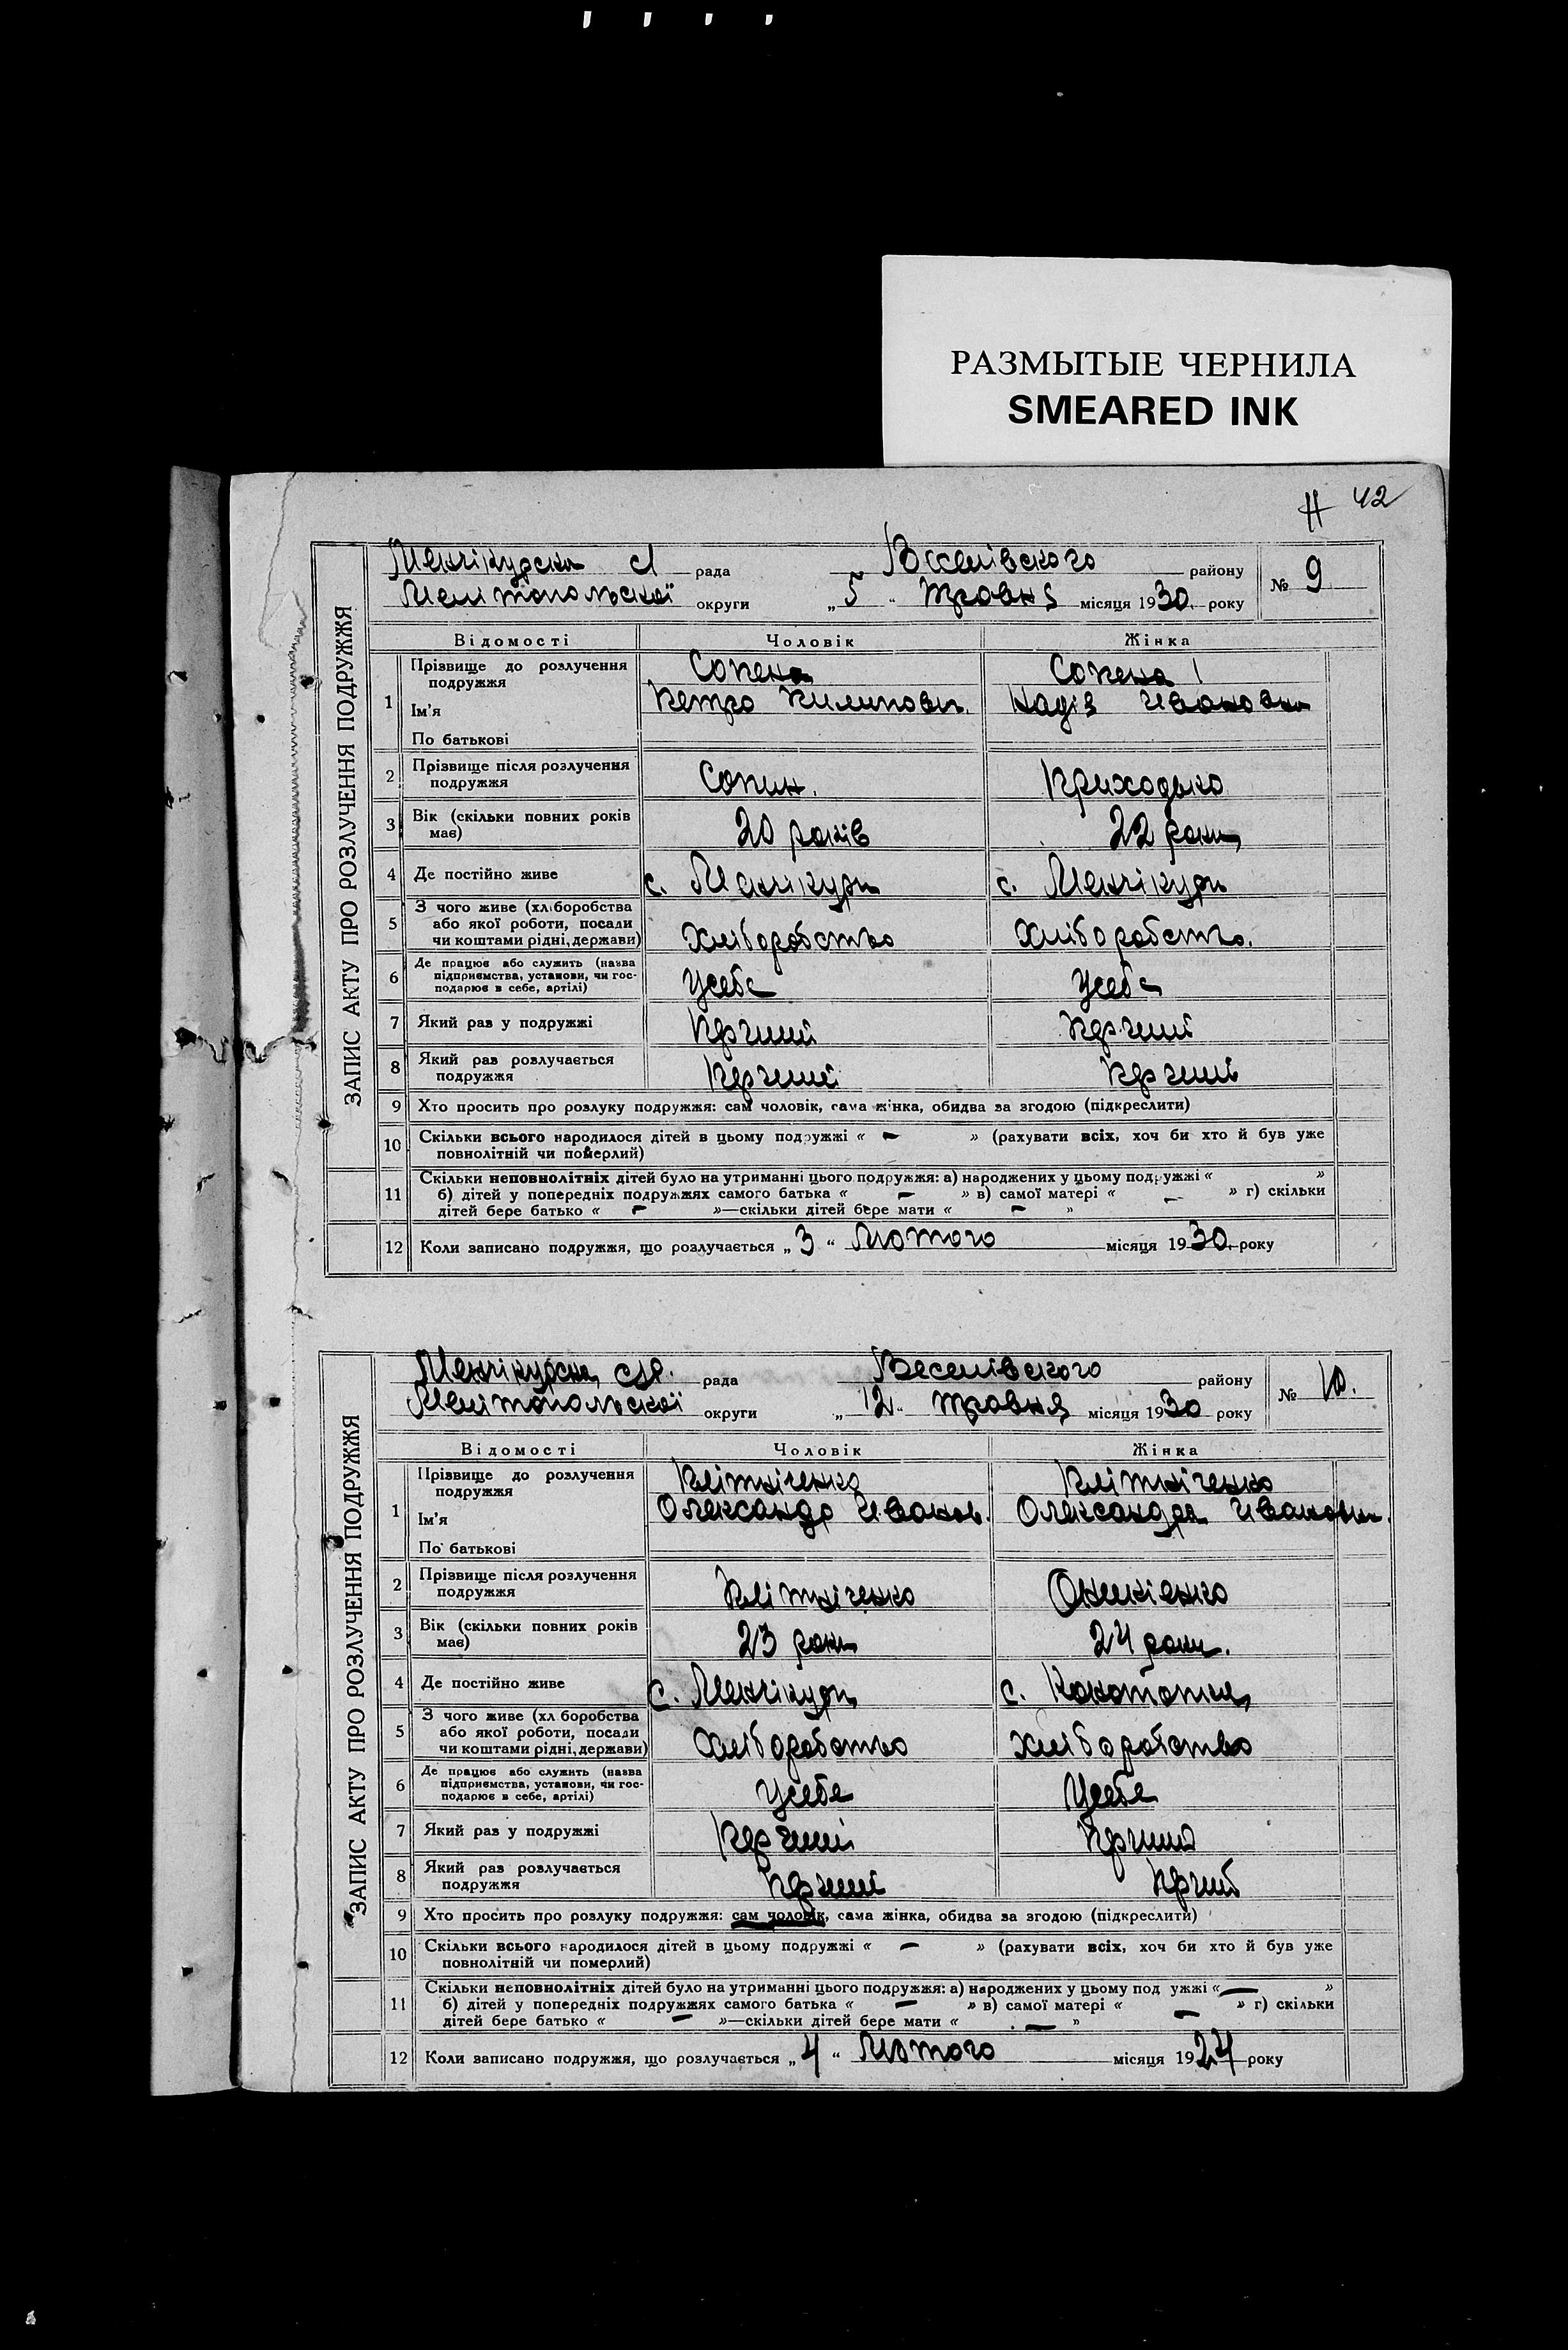 РАЗМЫТЫЕ ЧЕРНИЛА
SMEARED INK
42
ЗАПИС АКТУ ПРО РОЗЛУЧЕННЯ ПОДРУЖЖЯ
Менчікурська с рада Веселівського району № 9
Мелітопольської округи „5" травня місяця 1930 року
Відомості Чоловік Жінка
1 Прізвище до розлучення подружжя Сопена Сопена
Ім'я Петро Пилипович. Надія Ивановна
По батькові
2 Прізвище після розлучення подружжя Сопин. Приходько
3 Вік (скільки повних років має) 20 років 22 роки
4 Де постійно живе с. Менчікури с. Менчікури
5 З чого живе (хліборобства або якої роботи, посади чи коштами рідні, держави) Хліборобство Хліборобство.
6 Де працює або служить (назва підприємства, установи, чи господарює в себе, артілі) Усебе Усебе
7 Який раз у подружжі Перший Перший
8 Який раз розлучається подружжя Перший Перший
9 Хто просить про розлуку подружжя: сам чоловік, сама жінка, обидва за згодою (підкреслити)
10 Скільки всього народилося дітей в цьому подружжі « — » (рахувати всіх, хоч би хто й був уже
повнолітній чи померлий)
11 Скільки неповнолітніх дітей було на утриманні цього подружжя: а) народжених у цьому подружжі « »
б) дітей у попередніх подружжях самого батька « — » в) самої матері « — » г) скільки
дітей бере батько « — »—скільки дітей бере мати « — »
12 Коли записано подружжя, що розлучається „3" Лютого місяця 1930 року
ЗАПИС АКТУ ПРО РОЗЛУЧЕННЯ ПОДРУЖЖЯ
Менчікурська рада Веселівського району № 10.
Мелітопольської округи „12" травня місяця 1930 року
Відомості Чоловік Жінка
1 Прізвище до розлучення подружжя Клітніченко Клітніченко
Ім'я Олександр Иванов. Олександра Ивановн.
По батькові
2 Прізвище після розлучення подружжя Клітніченко
3 Вік (скільки повних років має) 23 роки 24 роки.
4 Де постійно живе с. Менчікури с.
5 З чого живе (хліборобства або якої роботи, посади чи коштами рідні, держави) Хліборобство хліборобство
6 Де працює або служить (назва підприємства, установи, чи господарює в себе, артілі) Усебе Усебе
7 Який раз у подружжі Перший Перший
8 Який раз розлучається подружжя Перший Перший
9 Хто просить про розлуку подружжя: сам чоловік, сама жінка, обидва за згодою (підкреслити)
10 Скільки всього народилося дітей в цьому подружжі « — » (рахувати всіх, хоч би хто й був уже
повнолітній чи померлий)
11 Скільки неповнолітніх дітей було на утриманні цього подружжя: а) народжених у цьому под ужжі « — »
б) дітей у попередніх подружжях самого батька « — » в) самої матері « — » г) скільки
дітей бере батько « — »—скільки дітей бере мати « — »
12 Коли записано подружжя, що розлучається „4" Лютого місяця 1924 року